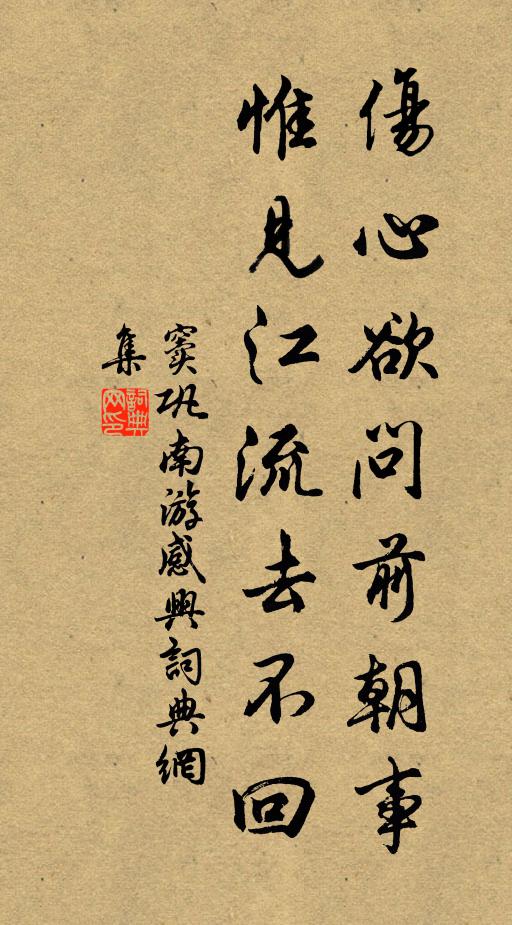 傷心欲問前朝事
惟見江流去不回
竇巩南游感興詞典網
集
詞典
网印